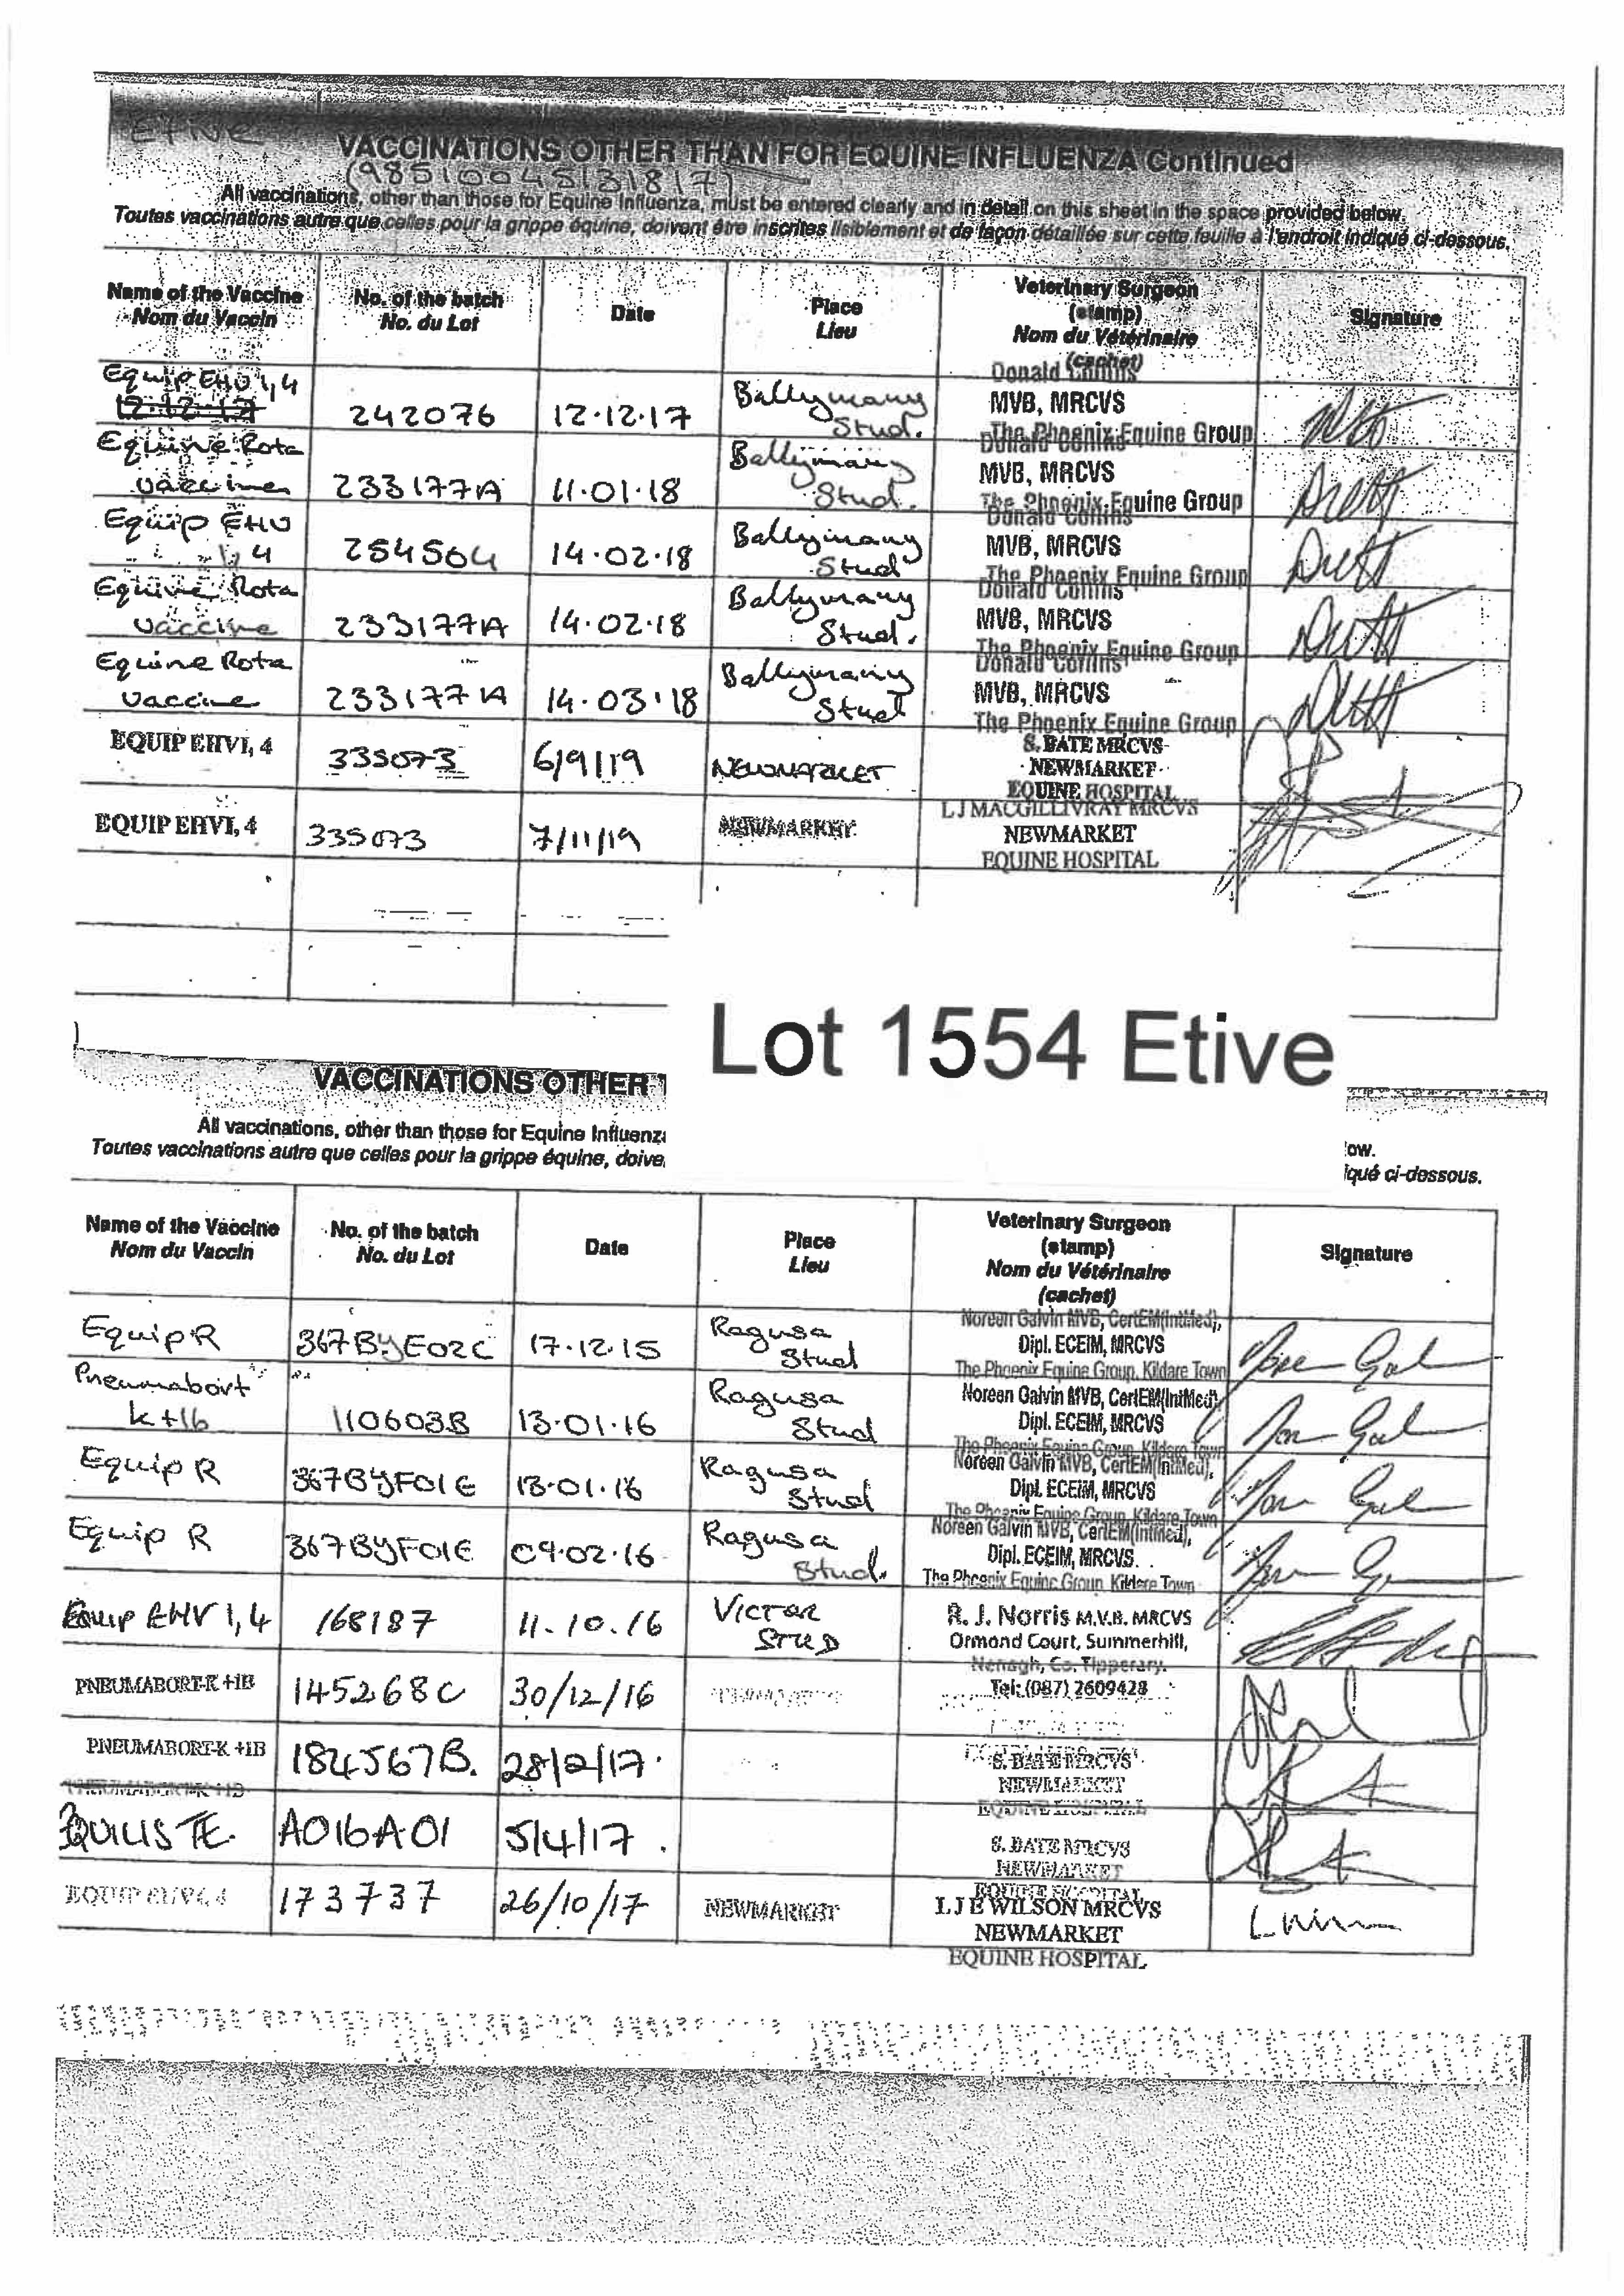 ETIVE
VACCINATIONS OTHER THAN FOR EQUINE INFLUENZA Continued
(985100045131817)
All vaccinations, other than those for Equine Influenza, must be entered clearly and in detail on this sheet in the space provided below.
Toutes vaccinations autre que celles pour la grippe équine, doivent être inscrites lisiblement et de façon détaillée sur cette feuille à l'endroit indiqué ci-dessous.
Name of the Vaccine No. of the batch Date Place Veterinary Surgeon Signature
Nom du Vaccin No. du Lot Lieu (stamp)
Nom du Vétérinaire
(cachet)
Equip EHV 1,4 Donald Collins
12.12.17 242076 12.12.17 Ballymany Stud. MVB, MRCVS
The Phoenix Equine Group
Equine Rota Donald Collins
vaccine 233177A 11.01.18 Ballymany Stud. MVB, MRCVS
The Phoenix Equine Group
Equip EHV Donald Collins
1,4 254504 14.02.18 Ballymany Stud MVB, MRCVS
The Phoenix Equine Group
Equine Rota Donald Collins
vaccine 233177A 14.02.18 Ballymany Stud. MVB, MRCVS
The Phoenix Equine Group
Equine Rota Donald Collins
vaccine 233177A 14.03.18 Ballymany Stud MVB, MRCVS
The Phoenix Equine Group
EQUIP EHV1, 4 335073 6/9/19 NEWMARKET S. BATE MRCVS
NEWMARKET
EQUINE HOSPITAL
EQUIP EHV1, 4 335073 7/11/19 NEWMARKET L J MACGILLIVRAY MRCVS
NEWMARKET
EQUINE HOSPITAL
Lot 1554 Etive
VACCINATIONS OTHER
All vaccinations, other than those for Equine Influenz
ow.
Toutes vaccinations autre que celles pour la grippe équine, doive
iqué ci-dessous.
Name of the Vaccine No. of the batch Date Place Veterinary Surgeon Signature
Nom du Vaccin No. du Lot Lieu (stamp)
Nom du Vétérinaire
(cachet)
Equip R 367BYE02C 17.12.15 Ragusa Stud Noreen Galvin MVB, CertEM(IntMed),
Dipl. ECEIM, MRCVS
The Phoenix Equine Group, Kildare Town
Pneumabort
k+1b 110603B 13.01.16 Ragusa Stud Noreen Galvin MVB, CertEM(IntMed),
Dipl. ECEIM, MRCVS
The Phoenix Equine Group, Kildare Town
Equip R 367BYF01E 13.01.16 Ragusa Stud Noreen Galvin MVB, CertEM(IntMed),
Dipl. ECEIM, MRCVS
The Phoenix Equine Group, Kildare Town
Equip R 367BYF01E 09.02.16 Ragusa Stud. Noreen Galvin MVB, CertEM(IntMed),
Dipl. ECEIM, MRCVS.
The Phoenix Equine Group, Kildare Town
Equip EHV 1,4 168187 11.10.16 VICTOR STUD R. J. Norris M.V.B. MRCVS
Ormond Court, Summerhill,
Nenagh, Co. Tipperary.
Tel: (087) 2609428
PNEUMABORT-K +1B 145268C 30/12/16
PNEUMABORT-K +1B 184567B. 28/2/17. S. BATE MRCVS
NEWMARKET
EQUINE HOSPITAL
PNEUMABORT-K +1B
EQUILIS TE. A016A01 5/4/17. S. BATE MRCVS
NEWMARKET
EQUINE HOSPITAL
EQUIP EHV1, 4 173737 26/10/17 NEWMARKET L J E WILSON MRCVS
NEWMARKET
EQUINE HOSPITAL